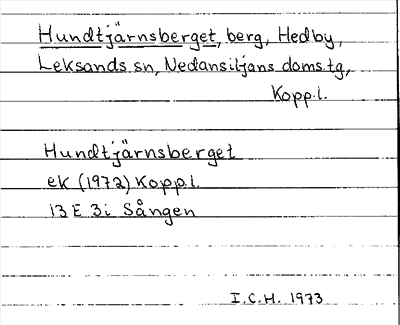 Hundtjärnsberget, berg, Hedby,
Leksands sn, Nedansiljans doms.tg,
Kopp.l.
Hundtjärnsberget
ek (1972) Kopp.l.
13 E 3i Sången
I.C.H. 1973